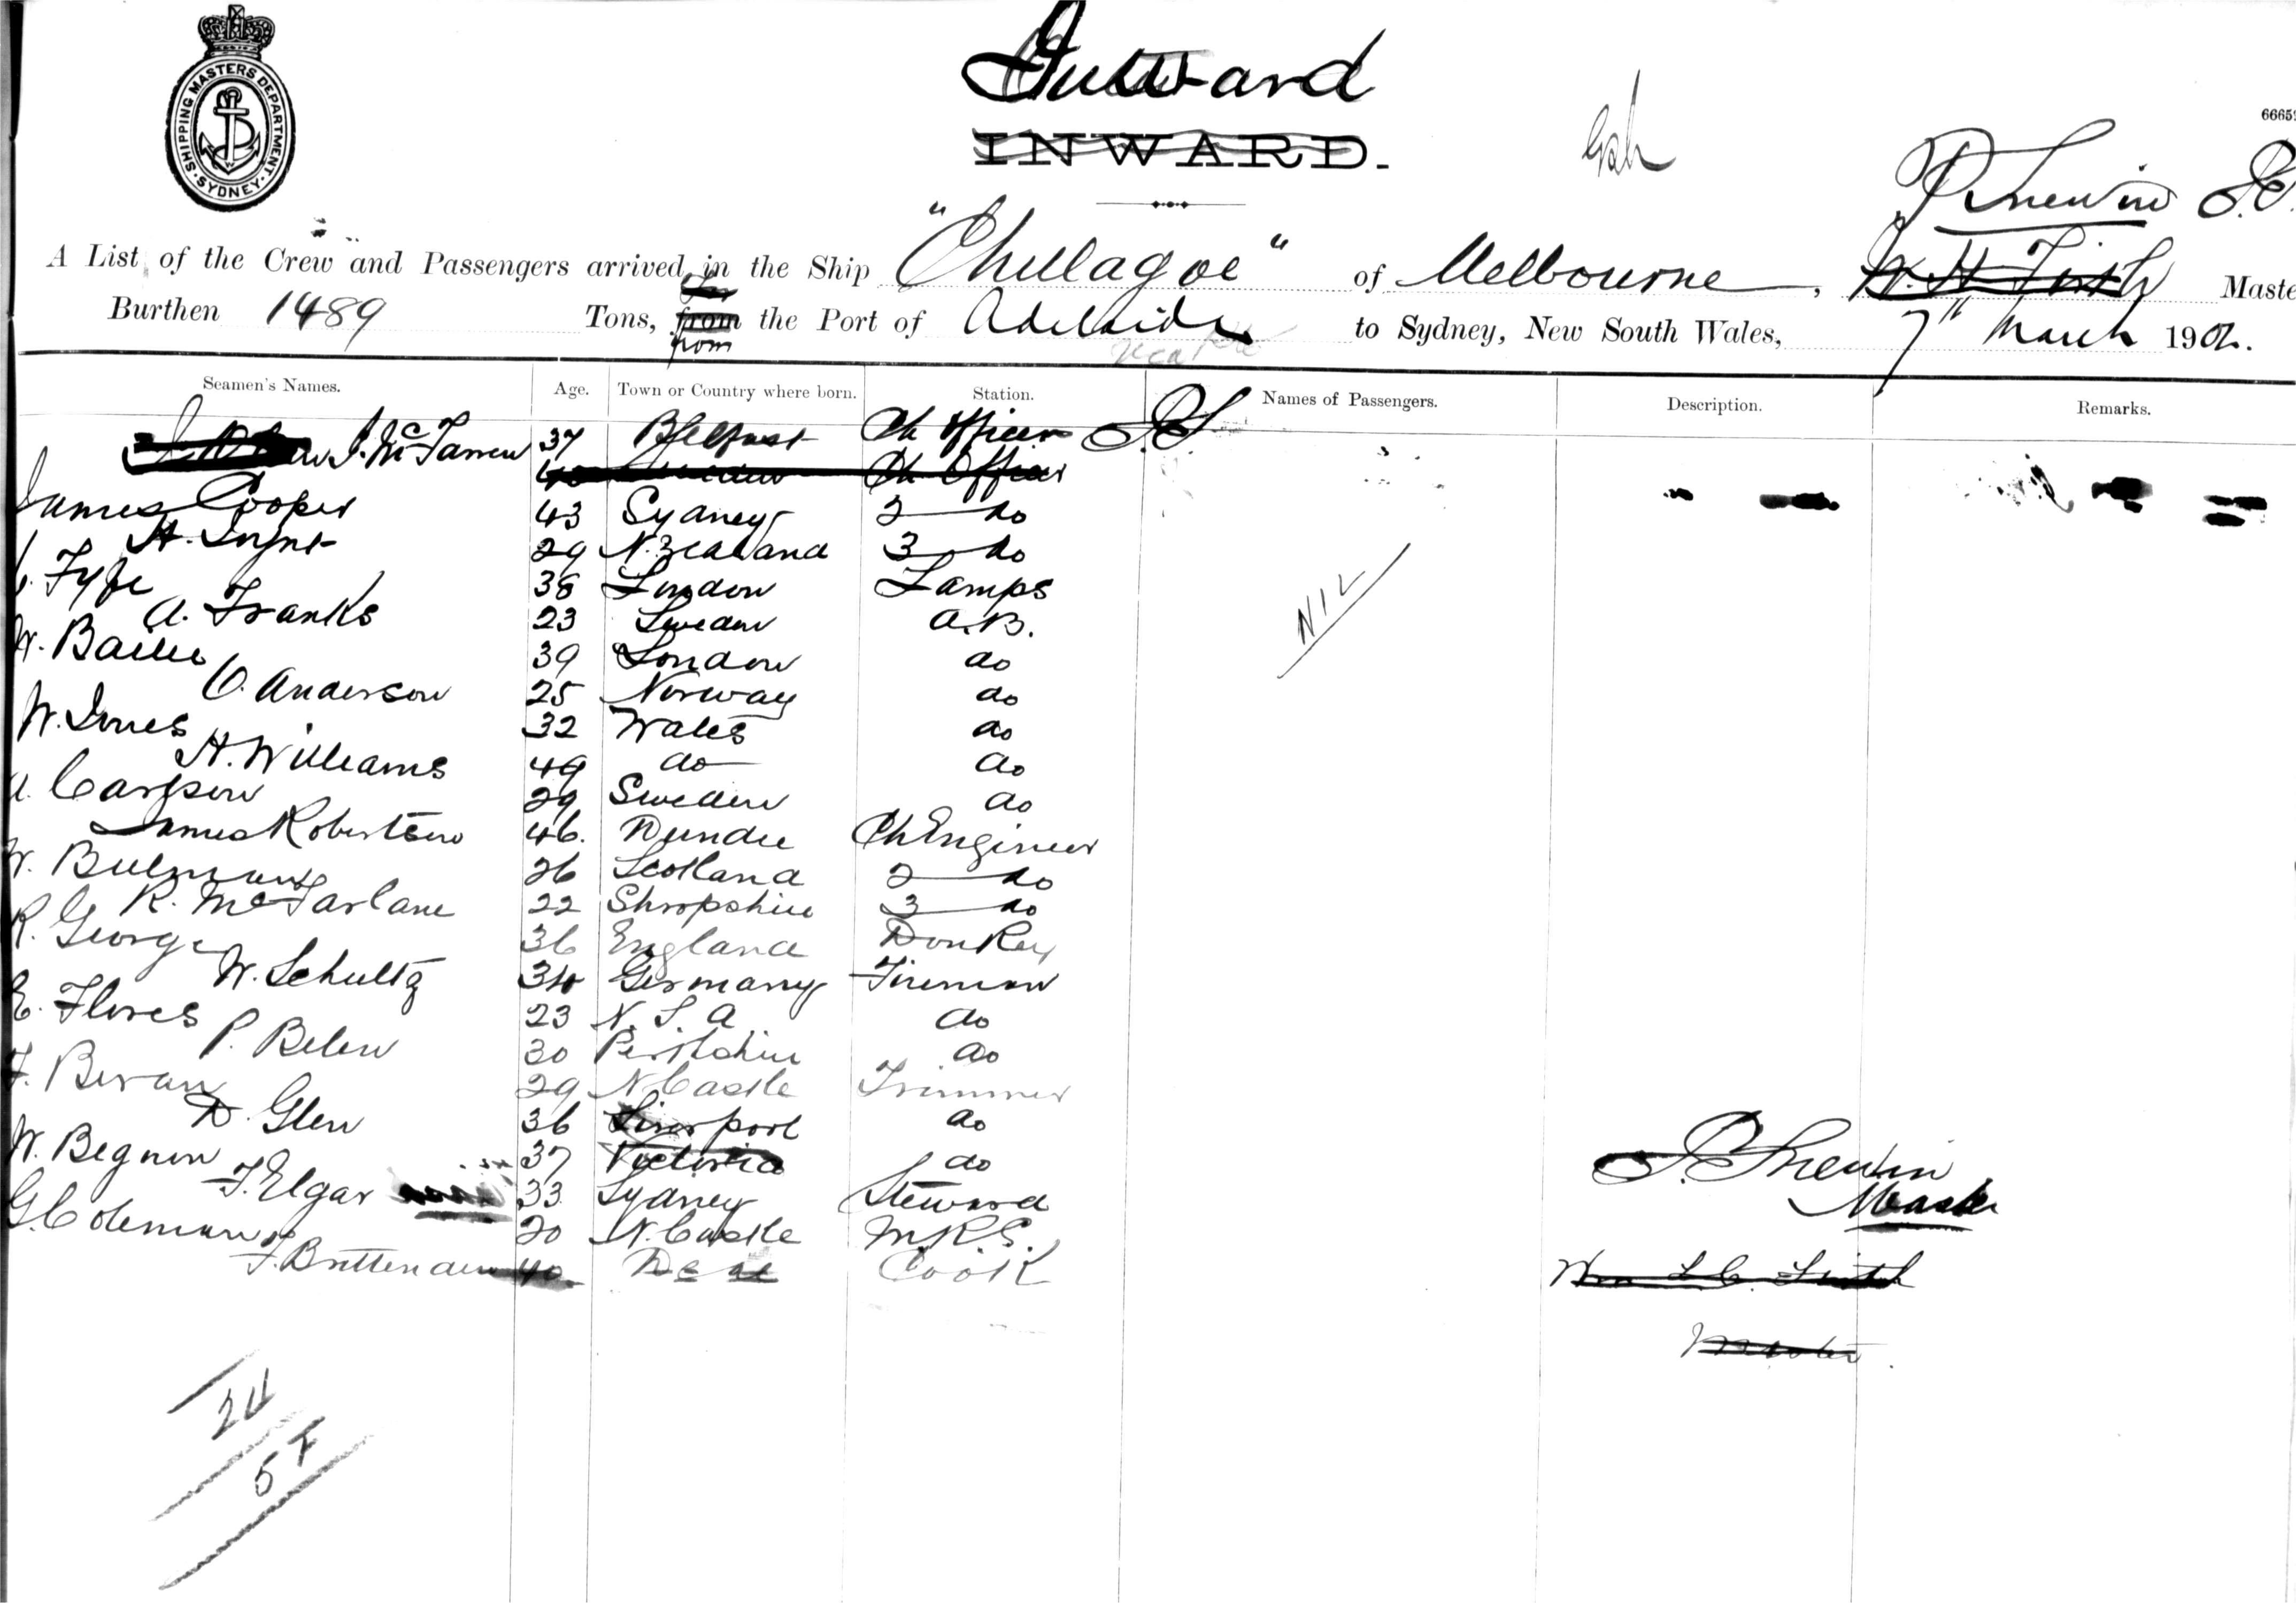 SHIPPING MASTERS DEPARTMENT. SYDNEY
Outward
INWARD.
6665
P. Shewin
A List of the Crew and Passengers arrived in the Ship "Chillagoe" of Melbourne, Maste
Burthen 1489 Tons, from the Port of Adelaide to Sydney, New South Wales, 7th March 190
from
Seamen's Names. Age. Town or Country where born. Station. Names of Passengers. Description. Remarks.
37 Belfast Ch Officer
Ch Officer
James Cooper 43 Sydney 2 do
H. 29 N. Zealand 3 do
Fyfe 38 London Lamps
A. Franks 23 Sweden A.B.
NIL
W. Bailie 39 London do
O. Anderson 25 Norway do
W. Jones 32 Wales do
H. Williams 49 do do
Carlson 29 Sweden do
James Robertson 46. Dundee Ch Engineer
W. Bulman 26 Scotland 2 do
R. McFarlane 22 Shropshire 3 do
R. George 36 England Donkey
W. Schultz 34 Germany Fireman
E. Flores 23 do
P. Belen 30 Perthshire do
F. Bevan 29 N. Castle Trimmer
D. Glen 36 Liverpool do
W. Begnon 37 Victoria do
F. Elgar 33 Sydney Steward
G. Coleman 20 N. Castle M.R.S.
F. Brittenden 40 Cook
P. Shewin
Master
Master
24
5